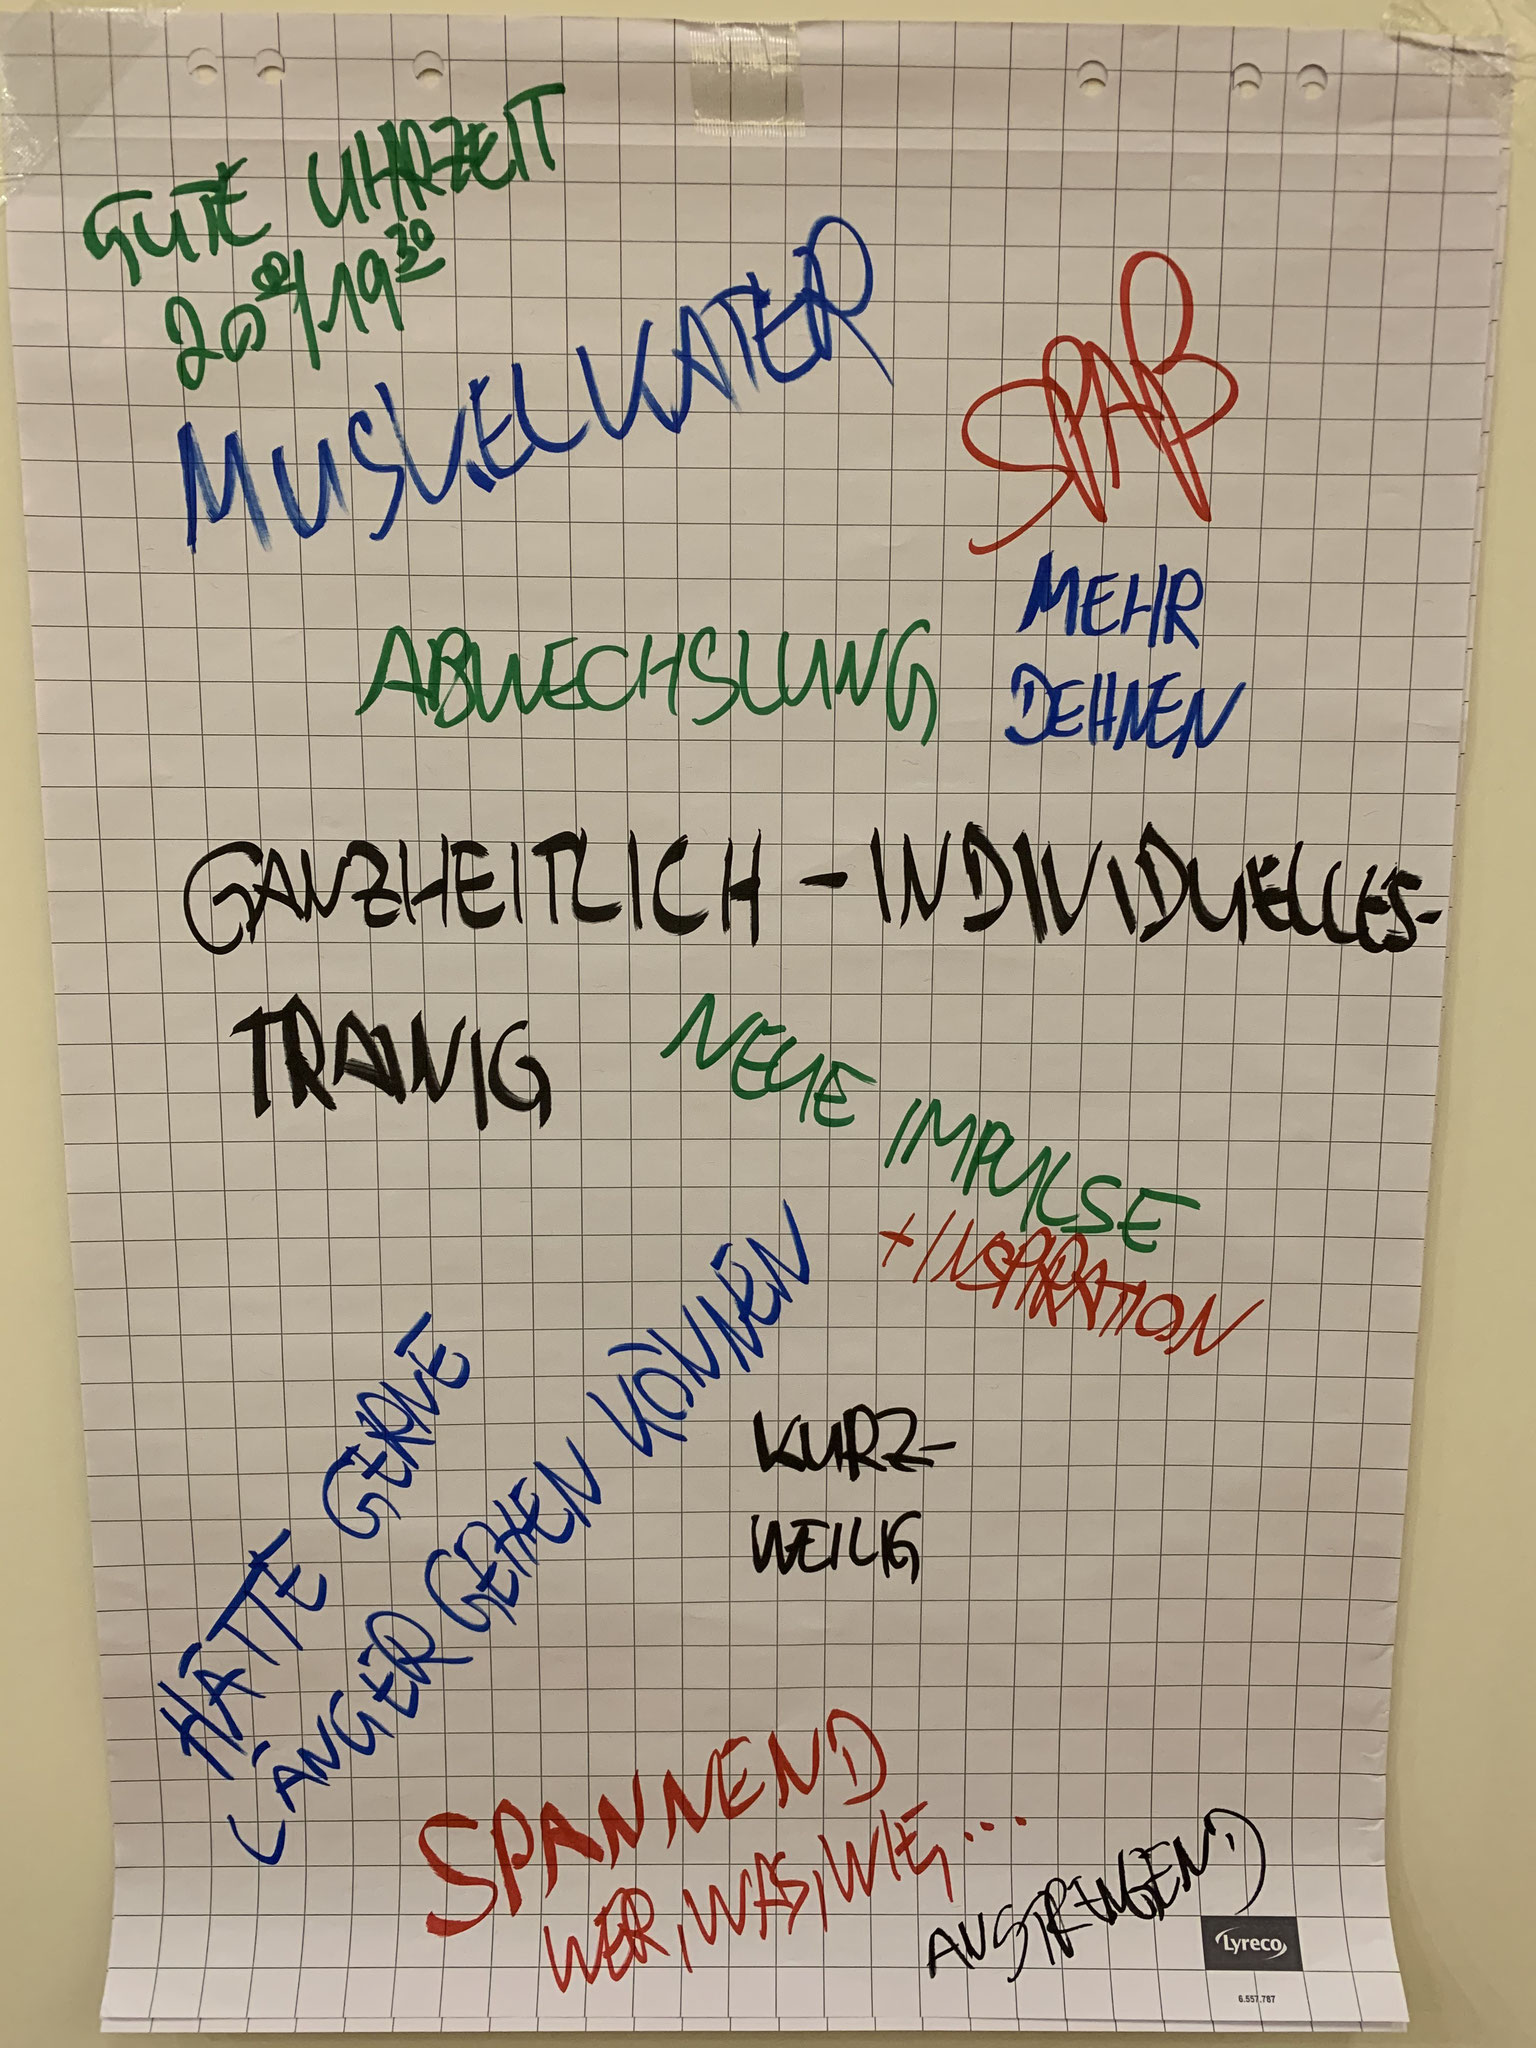 GUTE UHRZEIT
20⁰⁰/19³⁰
MUSKELKATER
SPAß
MEHR
DEHNEN
ABWECHSLUNG
GANZHEITLICH - INDIVIDUELLES-
TRAINIG
NEUE IMPULSE
+ INSPIRATION
HÄTTE GERNE
LÄNGER GEHEN KÖNNEN
KURZ-
WEILIG
SPANNEND
WER, WAS, WIE, ...
ANSTRENGEND
Lyreco
6.557.787